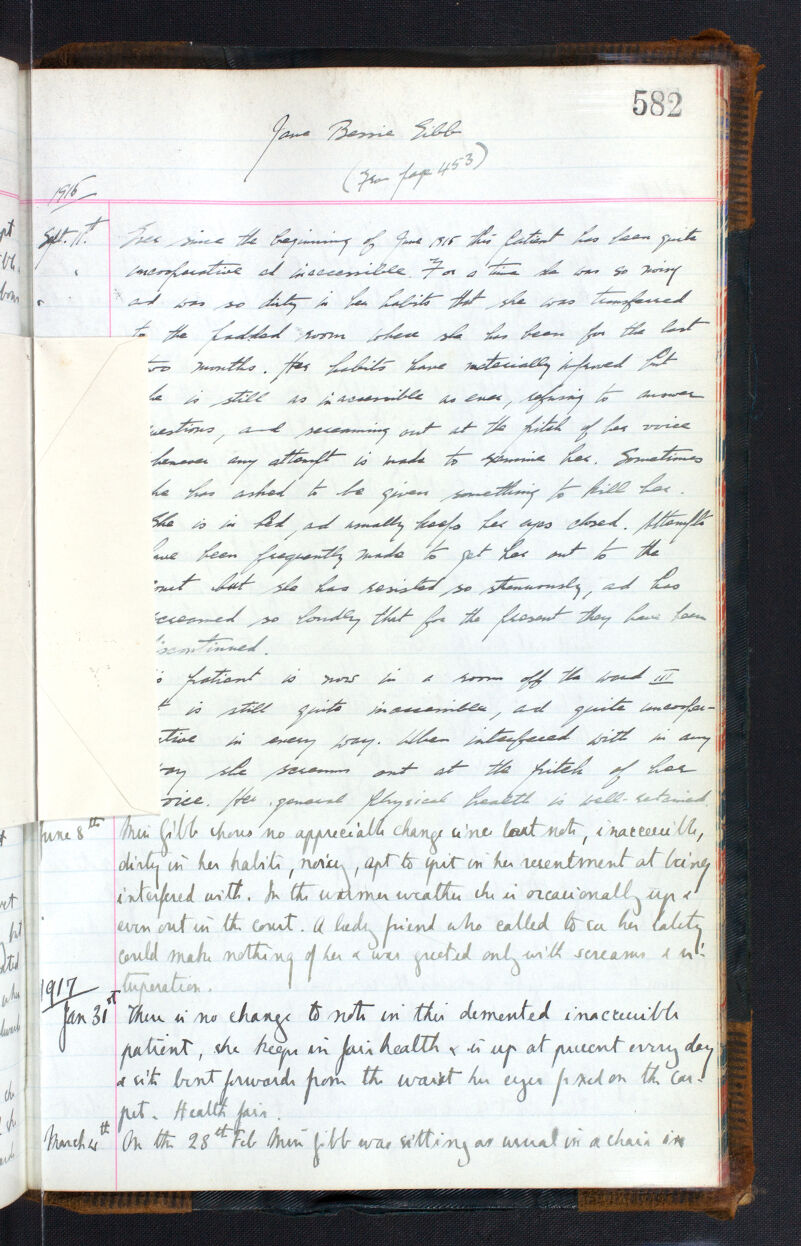 582
Jane Bessie Gibb
(From page 453)
1916
Sept. 11th Ever since the beginning of June 1915 this patient has been quite
uncooperative ad inaccessible. For a time she was so noisy
ad was so dirty in her habits that she was transferred
to the padded room where she has been for the last
two months. Her habits have materially improved but
he is still as inaccessible as ever, refusing to answer
uestions, and screaming out at the pitch of her voice
henever any attempt is made to examine her. Sometimes
he has asked to be given something to kill her.
She is in bed, ad usually keeps her eyes closed. Attempts
ave been frequently made to get her out to the
ourt but she has resisted so strenuously, ad has
creamed so loudly that for the present they have been
iscontinued.
s patient is now in a room off the ward III
t is still quite inaccessible, ad quite uncooper-
ative in every way. When interfered with in any
way she screams out at the pitch of her
voice. Her general physical health is well-retained.
June 8th Miss Gibb shows no appreciable change since last note, inaccessible,
dirty in her habits, noisy, apt to spit in her resentment at being
interfered with. In the warmer weather she is occasionally up &
even out in the court. A lady friend who called to see her lately
could make nothing of her & was greeted only with screams & vi-
tuperation.
1917
Jan 31st There is no change to note in this demented inaccessible
patient, she keeps in fair health & is up at present every day
& sits bent forwards from the waist her eyes fixed on the car-
pet. Health fair.
March 4th On the 28th Feb Miss Gibb was sitting as usual in a chair in